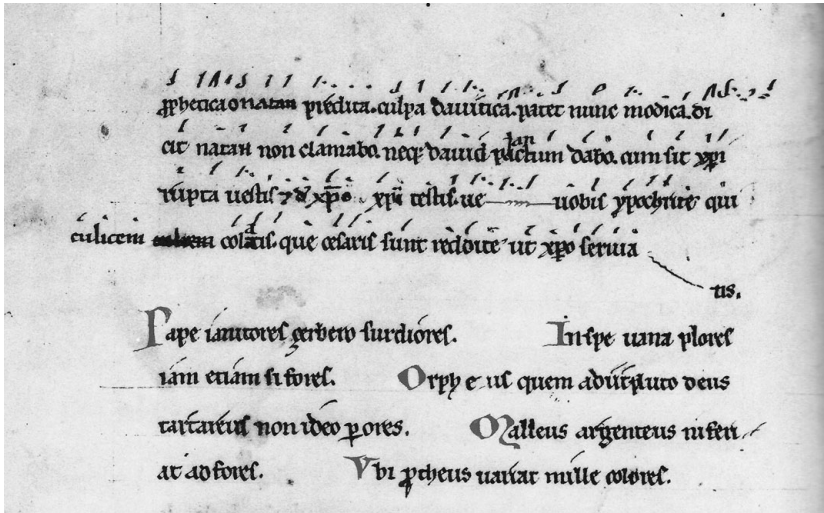 prophetica o natan predita. culpa davitica. patet nunc modica. di
cit natan non clamabo. neque david planctum dabo. cum sit xpi
rupta vestis 7 d xpo xpi testis. ve vobis ypochrite qui
culicem colatis. que cesaris sunt reddite ut xpo servia
tis.
Pape ianitores cerbero surdiores. In spe vana plores
iam etiam si fores. Orpheus quem audit pluto deus
tartareus non ideo perores. Malleus argenteus ni feri
at ad fores. Ubi protheus variat mille colores.